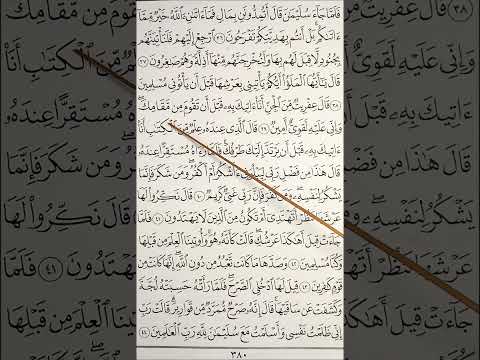 فَلَمَّا جَآءَ سُلَيْمَٰنَ قَالَ أَتُمِدُّونَنِ بِمَالٍ فَمَآ ءَاتَىٰنِۦَ ٱللَّهُ خَيْرٌ مِّمَّآ
ءَاتَىٰكُم بَلْ أَنتُم بِهَدِيَّتِكُمْ تَفْرَحُونَ ٣٦ ٱرْجِعْ إِلَيْهِمْ فَلَنَأْتِيَنَّهُم
بِجُنُودٍ لَّا قِبَلَ لَهُم بِهَا وَلَنُخْرِجَنَّهُم مِّنْهَآ أَذِلَّةً وَهُمْ صَٰغِرُونَ ٣٧
قَالَ يَٰٓأَيُّهَا ٱلْمَلَؤُا۟ أَيُّكُمْ يَأْتِينِى بِعَرْشِهَا قَبْلَ أَن يَأْتُونِى مُسْلِمِينَ
٣٨ قَالَ عِفْرِيتٌ مِّنَ ٱلْجِنِّ أَنَا۠ ءَاتِيكَ بِهِۦ قَبْلَ أَن تَقُومَ مِن مَّقَامِكَ
وَإِنِّى عَلَيْهِ لَقَوِىٌّ أَمِينٌ ٣٩ قَالَ ٱلَّذِى عِندَهُۥ عِلْمٌ مِّنَ ٱلْكِتَٰبِ أَنَا۠
ءَاتِيكَ بِهِۦ قَبْلَ أَن يَرْتَدَّ إِلَيْكَ طَرْفُكَ فَلَمَّا رَءَاهُ مُسْتَقِرًّا عِندَهُۥ
قَالَ هَٰذَا مِن فَضْلِ رَبِّى لِيَبْلُوَنِىٓ ءَأَشْكُرُ أَمْ أَكْفُرُ وَمَن شَكَرَ فَإِنَّمَا
يَشْكُرُ لِنَفْسِهِۦ وَمَن كَفَرَ فَإِنَّ رَبِّى غَنِىٌّ كَرِيمٌ ٤٠ قَالَ نَكِّرُوا۟ لَهَا
عَرْشَهَا نَنظُرْ أَتَهْتَدِىٓ أَمْ تَكُونُ مِنَ ٱلَّذِينَ لَا يَهْتَدُونَ ٤١ فَلَمَّا
جَآءَتْ قِيلَ أَهَٰكَذَا عَرْشُكِ قَالَتْ كَأَنَّهُۥ هُوَ وَأُوتِينَا ٱلْعِلْمَ مِن قَبْلِهَا
وَكُنَّا مُسْلِمِينَ ٤٢ وَصَدَّهَا مَا كَانَت تَّعْبُدُ مِن دُونِ ٱللَّهِ إِنَّهَا كَانَتْ مِن
قَوْمٍ كَٰفِرِينَ ٤٣ قِيلَ لَهَا ٱدْخُلِى ٱلصَّرْحَ فَلَمَّا رَأَتْهُ حَسِبَتْهُ لُجَّةً
وَكَشَفَتْ عَن سَاقَيْهَا قَالَ إِنَّهُۥ صَرْحٌ مُّمَرَّدٌ مِّن قَوَارِيرَ قَالَتْ رَبِّ
إِنِّى ظَلَمْتُ نَفْسِى وَأَسْلَمْتُ مَعَ سُلَيْمَٰنَ لِلَّهِ رَبِّ ٱلْعَٰلَمِينَ ٤٤
٣٨٠